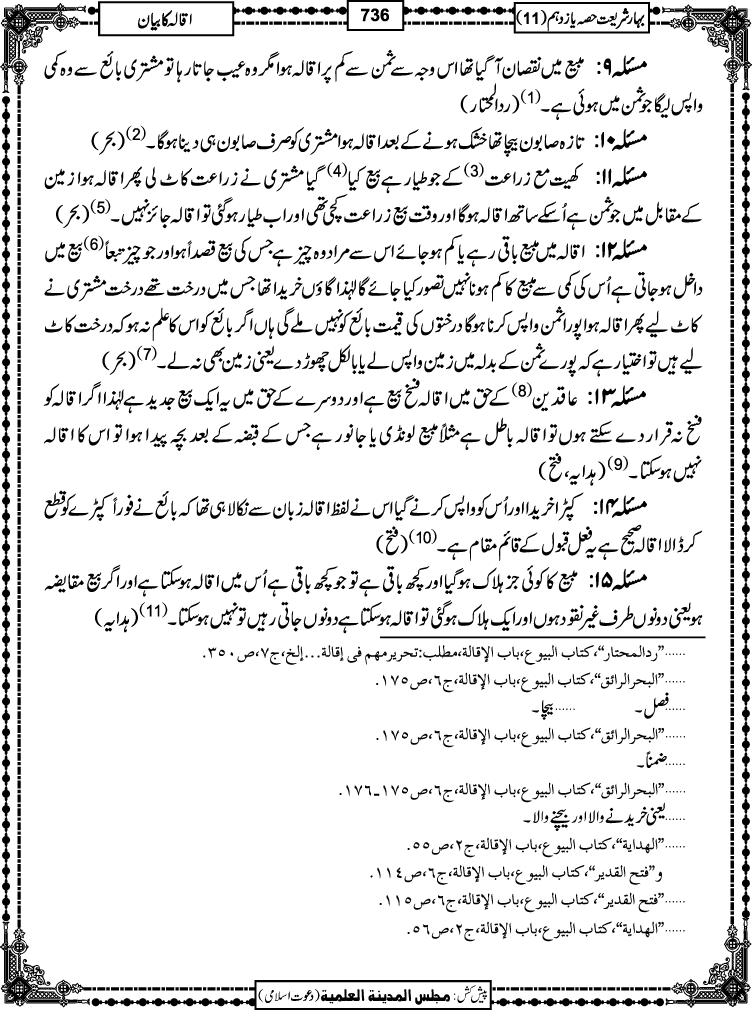 بہار شریعت حصہ یازدہم (11)
736
اقالہ کا بیان
مسئلہ ۹: مبیع میں نقصان آگیا تھا اس وجہ سے ثمن سے کم پر اقالہ ہوا مگر وہ عیب جاتا رہا تو مشتری بائع سے وہ کمی
واپس لیگا جو ثمن میں ہوئی ہے۔(1) (ردالمحتار)
مسئلہ ۱۰: تازہ صابون بیچا تھا خشک ہونے کے بعد اقالہ ہوا مشتری کو صرف صابون ہی دینا ہوگا۔(2) (بحر)
مسئلہ ۱۱: کھیت مع زراعت(3) کے جو طیار ہے بیع کیا(4) گیا مشتری نے زراعت کاٹ لی پھر اقالہ ہوا زمین
کے مقابل میں جو ثمن ہے اُسکے ساتھ اقالہ ہوگا اور وقت بیع زراعت کچی تھی اور اب طیار ہوگئی تو اقالہ جائز نہیں۔(5) (بحر)
مسئلہ ۱۲: اقالہ میں مبیع باقی رہے یا کم ہو جائے اس سے مراد وہ چیز ہے جس کی بیع قصداً ہو اور جو چیز تبعاً(6) بیع میں
داخل ہو جاتی ہے اُس کی کمی سے مبیع کا کم ہونا نہیں تصور کیا جائے گا لہٰذا گاؤں خریدا تھا جس میں درخت تھے درخت مشتری نے
کاٹ لیے پھر اقالہ ہوا پورا ثمن واپس کرنا ہوگا درختوں کی قیمت بائع کو نہیں ملے گی ہاں اگر بائع کو اس کا علم نہ ہو کہ درخت کاٹ
لیے ہیں تو اختیار ہے کہ پورے ثمن کے بدلہ میں زمین واپس لے یا بالکل چھوڑ دے یعنی زمین بھی نہ لے۔(7) (بحر)
مسئلہ ۱۳: عاقدین(8) کے حق میں اقالہ فسخ بیع ہے اور دوسرے کے حق میں یہ ایک بیع جدید ہے لہٰذا اگر اقالہ کو
فسخ نہ قرار دے سکتے ہوں تو اقالہ باطل ہے مثلاً مبیع لونڈی یا جانور ہے جس کے قبضہ کے بعد بچہ پیدا ہوا تو اس کا اقالہ
نہیں ہوسکتا۔(9) (ہدایہ، فتح)
مسئلہ ۱۴: کپڑا خریدا اور اُس کو واپس کرنے گیا اس نے لفظ اقالہ زبان سے نکالا ہی تھا کہ بائع نے فوراً کپڑے کو قطع
کر ڈالا اقالہ صحیح ہے یہ فعل قبول کے قائم مقام ہے۔(10) (فتح)
مسئلہ ۱۵: مبیع کا کوئی جز ہلاک ہوگیا اور کچھ باقی ہے تو جو کچھ باقی ہے اُس میں اقالہ ہوسکتا ہے اور اگر بیع مقایضہ
ہو یعنی دونوں طرف غیر نقود ہوں اور ایک ہلاک ہوگئی تو اقالہ ہوسکتا ہے دونوں جاتی رہیں تو نہیں ہوسکتا۔(11) (ہدایہ)
......”ردالمحتار“،کتاب البیوع،باب الإقالة،مطلب:تحریرمهم فی إقالة...إلخ،ج۷،ص۳۵۰.
......”البحرالرائق“،کتاب البیوع،باب الإقالة،ج۶،ص۱۷۵.
......فصل۔ ......بیچا۔
......”البحرالرائق“،کتاب البیوع،باب الإقالة،ج۶،ص۱۷۵.
......ضمناً۔
......”البحرالرائق“،کتاب البیوع،باب الإقالة،ج۶،ص۱۷۵۔۱۷۶.
......یعنی خریدنے والا اور بیچنے والا۔
......”الهدایة“،کتاب البیوع،باب الإقالة،ج۲،ص۵۵.
و”فتح القدیر“،کتاب البیوع،باب الإقالة،ج۶،ص۱۱۴.
......”فتح القدیر“،کتاب البیوع،باب الإقالة،ج۶،ص۱۱۵.
......”الهدایة“،کتاب البیوع،باب الإقالة،ج۲،ص۵۶.
پیش کش: مجلس المدینة العلمیة (دعوت اسلامی)